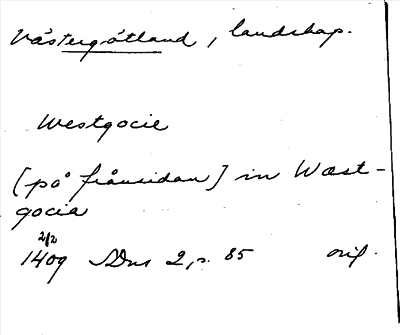 Västergötland, landskap.
Westgocie
[på frånsidan] in Wæst-
gocia
2/2
1409 SDns 2, s. 85 orig.